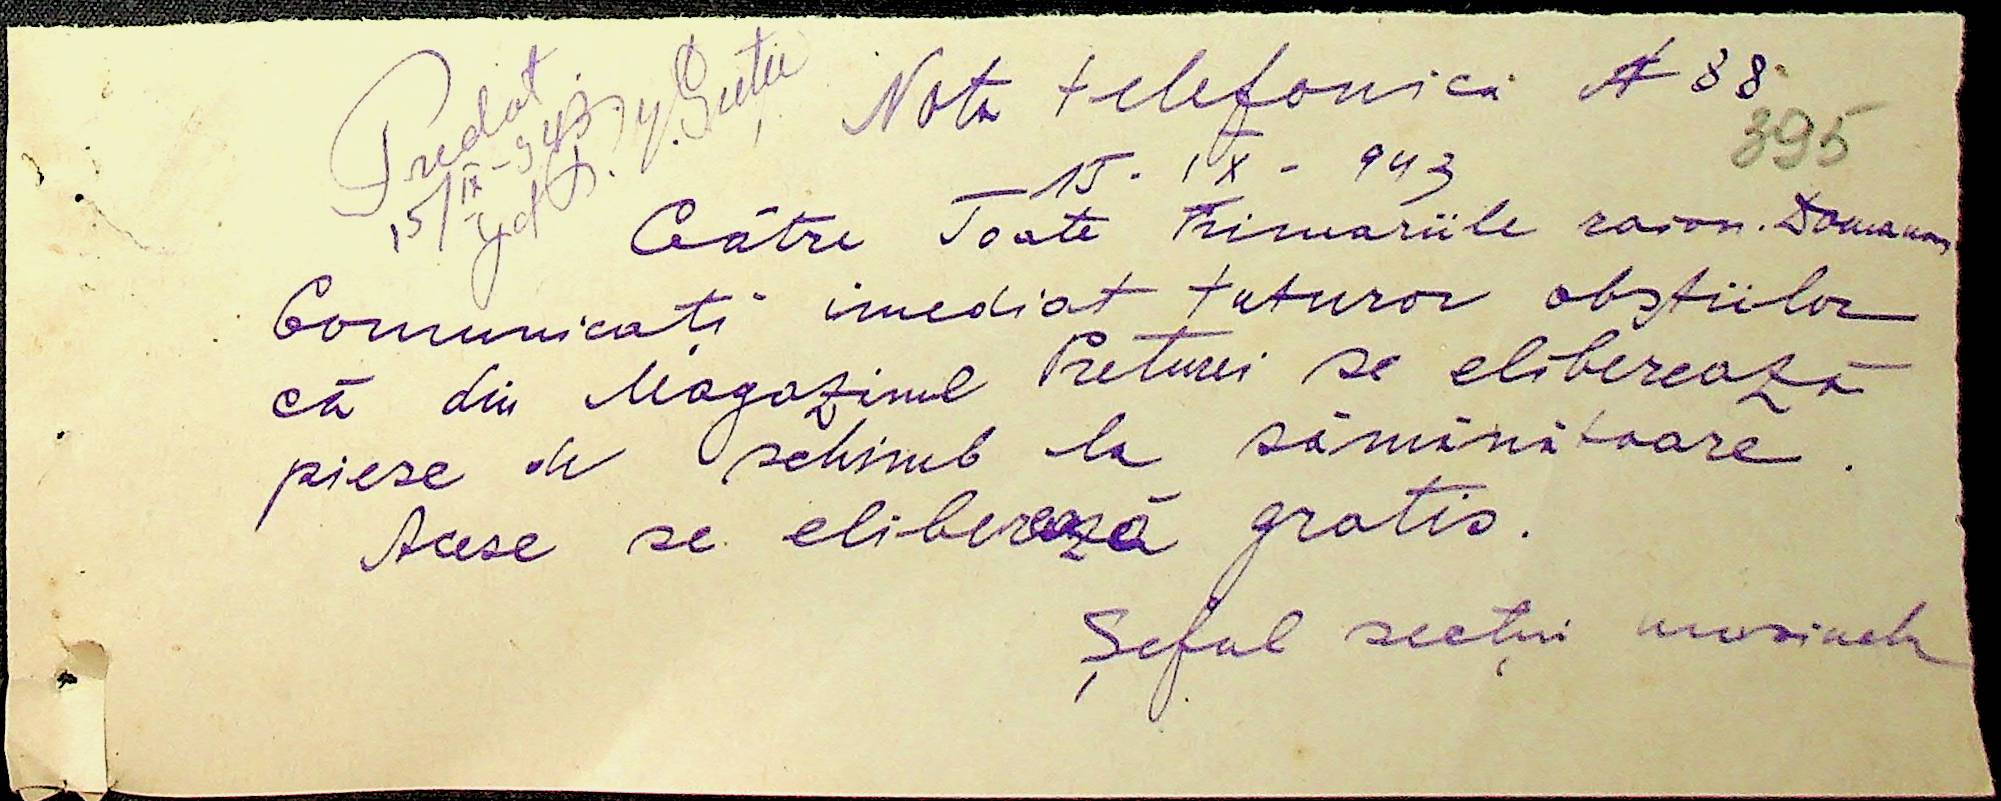 Predat
15/IX-943
Nota telefonica № 38
395
15 - IX - 943
Către Toate Primariile raion. Domanov
Comunicați imediat tuturor obștiilor
că din Magazinul Preturei se eliberează
piese de schimb la sămănătoare.
Acese se eliberează gratis.
Șeful secției